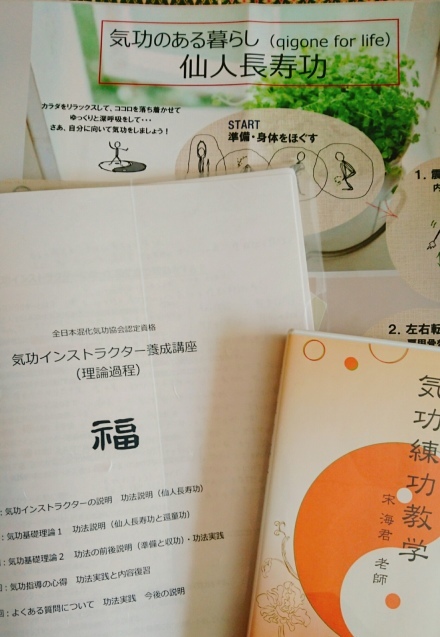 気功のある暮らし（qigone for life）
仙人長寿功
カラダをリラックスして、ココロを落ち着かせて
ゆっくりと深呼吸をして・・・
さあ、自分に向いて気功をしましょう！
START
準備・身体をほぐす
1.
2. 左右転
全日本混化気功協会認定資格
気功インストラクター養成講座
（理論過程）
福
：気功インストラクターの説明　功法説明（仙人長寿功）
：気功基礎理論１　功法説明（仙人長寿功と逗童功）
：気功基礎理論２　功法の前後説明（準備と収功）・功法実践
：気功指導の心得　功法実践と内容復習
：よくある質問について　功法実践　今後の説明
気功練功教学
宋海君 老師